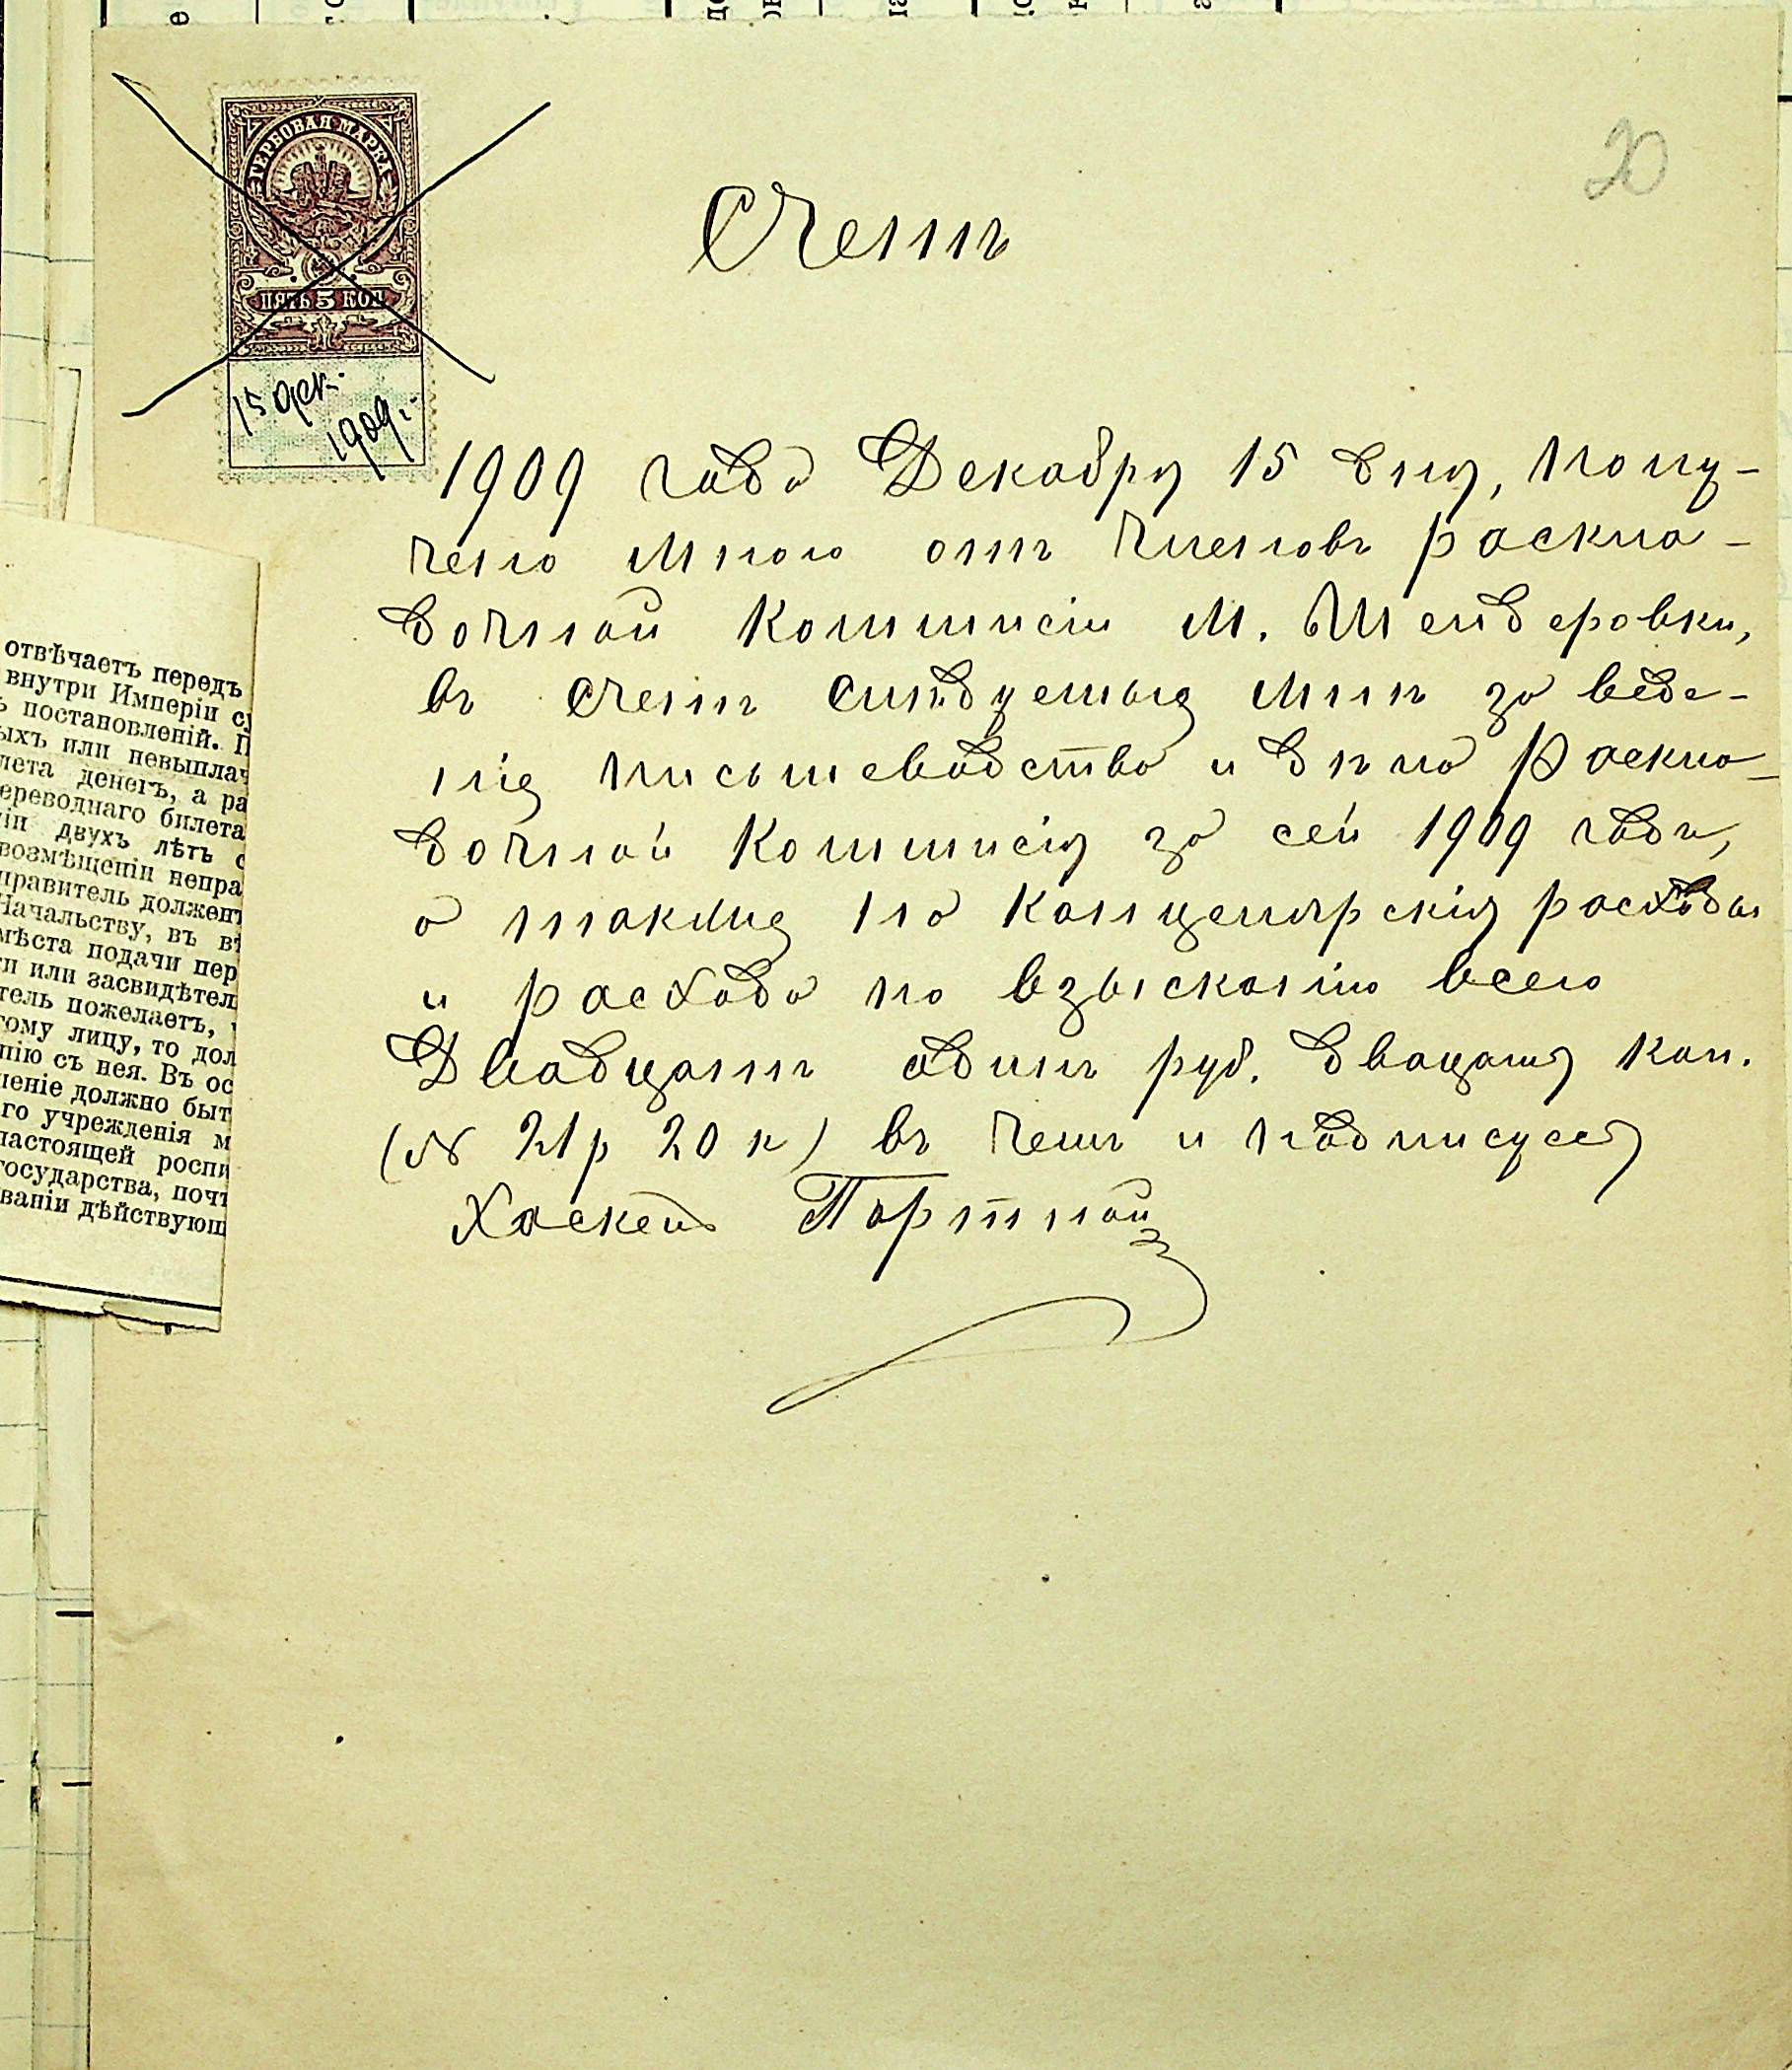 20
ГЕРБОВАЯ МАРКА
ПЯТЬ 5 КОП
15 дек.
1909 г.
Счетъ
1909 года Декабря 15 дня, полу-
чено мною отъ членовъ раскла-
дочной Коммисіи М. Шендеровки,
въ счетъ слѣдуемыя мнѣ за веде-
нія письмеводства и дѣла Раскла-
дочной Коммисія за сей 1909 годъ,
а также на канцелярскія расходы
и расхода по взысканію всего
Двадцать одинъ руб. двацать коп.
(№ 21 р 20 к) въ чемъ и подписуся
Хаскель Портной
отвѣчаетъ передъ
внутри Имперіи сл
ь постановленій. П
ыхъ или невыплач
лета денегъ, а ра
ереводнаго билета
іи двухъ лѣтъ с
возмѣщеніи непра
правитель долженъ
Начальству, въ вѣ
мѣста подачи пер
ги или засвидѣтел
тель пожелаетъ,
тому лицу, то дол
нію съ нея. Въ ос
ченіе должно быт
го учрежденія м
настоящей роспи
государства, почт
ваніи дѣйствующ